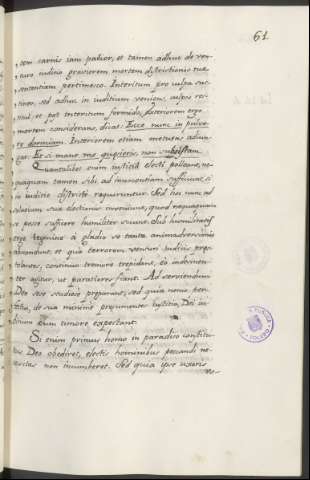 61
tem carnis iam patior, et tamen adhuc de ven-
turo iudice graviorem mortem districtionis tuæ
sententiam pertimesco. Interitum pro culpa sus-
tineo, sed adhuc in iuditium veniens, culpas
et post interitum formido. Exteriorem ergo
mortem considerans, dicat: Ecce nunc in pulve-
re dormiam. Interiorem etiam metuens adiun-
gat: Et si mane me quæsieris, non subsistam.
Quantalibet enim iustitia electi polleant, ne-
quaquam tamen sibi ad innocentiam sufficiunt, si
in iuditio districte requirantur. Sed hoc nunc ad
solatium suæ electionis inveniunt, quod nequaquam
se posse sufficere humiliter sciunt. Sub humilitatis
ergo tegmine à gladio se tantæ animadversionis
abscondunt, et quia terrorem venturi iudicis præs-
tolantes, continuo tremore trepidant, eo indesinen-
ter agitur, ut paratiores fiant. Ad serviendum
Deo se studiose preparant, sed quia nemo per-
de sua minime præsumentes iustitia, Dei iu-
ditium cum timore expectant.
Si enim primus homo in paradiso constitu-
tus Deo obediret, electis hominibus peccandi ne-
cessitas non incumberet. Sed quia ipse
PUBLICA
TOLEDO